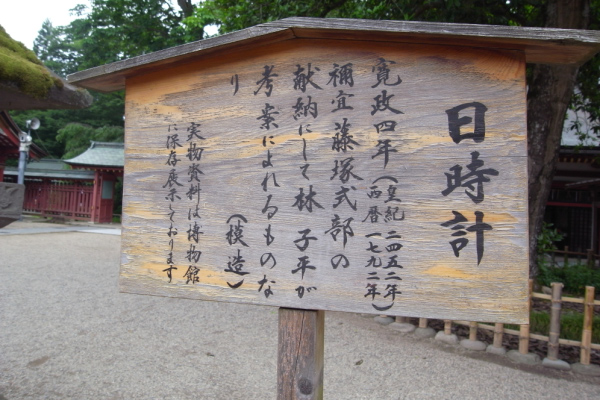 日時計
寛政四年(皇紀 二四五二年 西暦 一七九二年)
禰宜 藤塚式部の
献納にして林 子平が
考案によれるものな
り
(模造)
実物資料は博物館
に保存展示しております